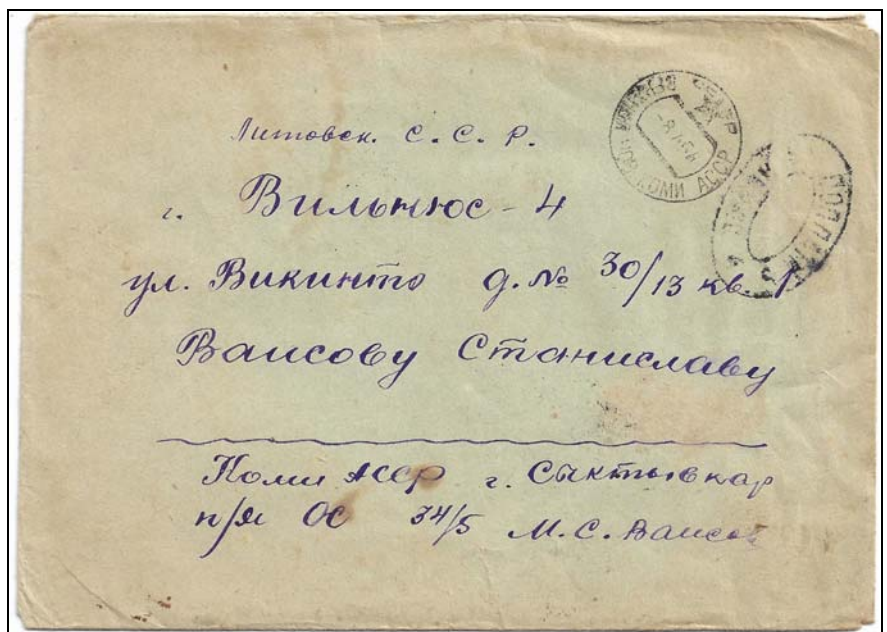 Литовск. С. С. Р.
г. Вильнюс - 4
ул. Викинто д. № 30/13 кв. 1
Ваисову Станиславу
Коми АССР г. Сыктывкар
п/я ОС 34/5 М. С. Ваисов
КОМИ АССР